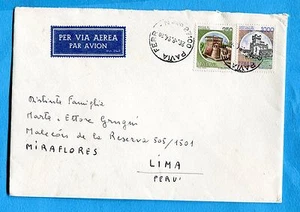 PER VIA AEREA
PAR AVION
PAVIA FERR
1000
Distinta Famiglia
Marta e Ettore
Malecón de la Reserva 505/1501
MIRAFLORES
LIMA
PERÚ